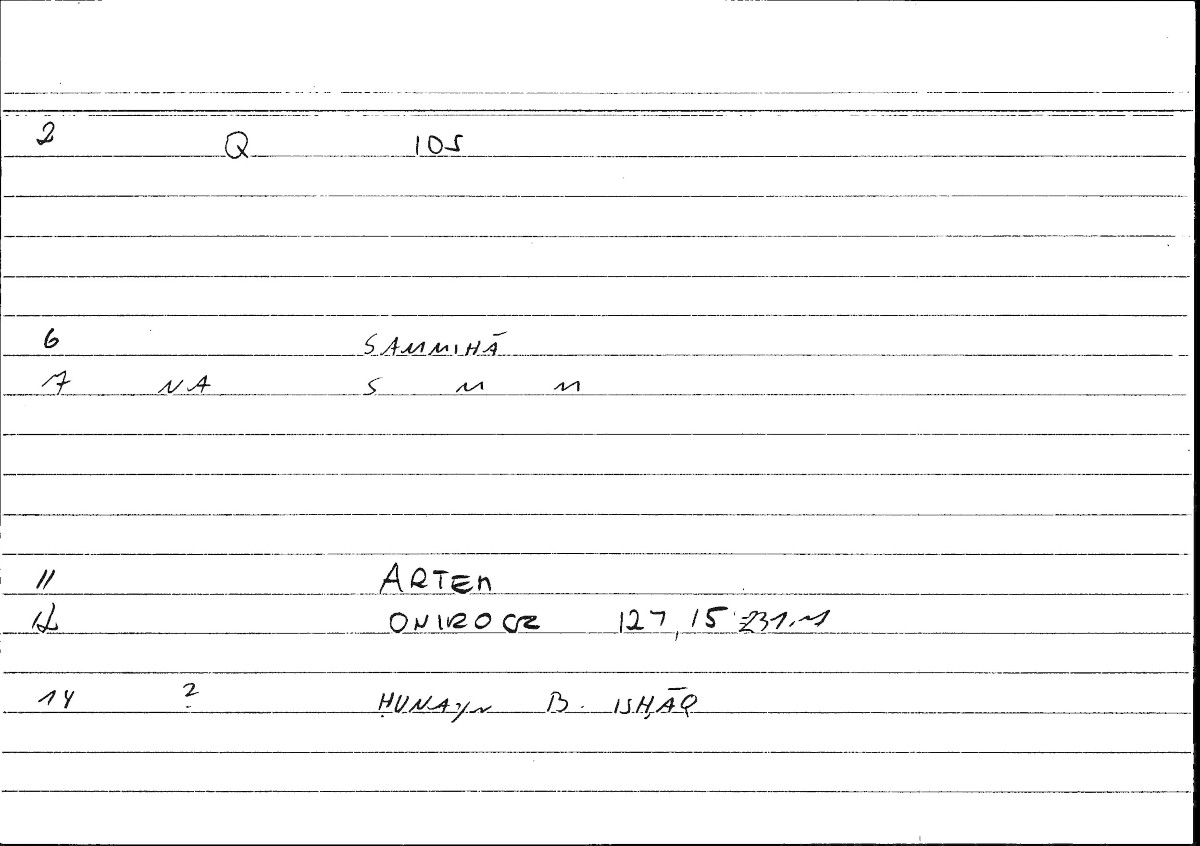 2 Q 105
6 SAMMIHĀ
7 NA S M M
11 ARTEM
12 ONIROCR 127,15
14 ? ḤUNAYN B. ISḤĀQ